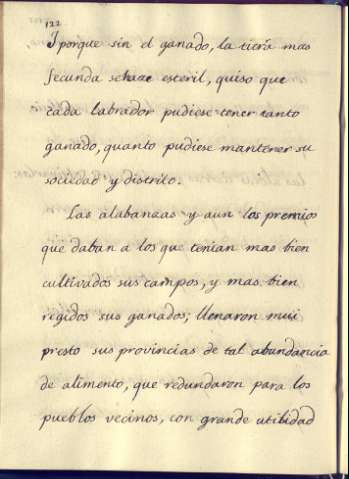 122
I porque sin el ganado, la tierra mas
fecunda se haze esteril, quiso que
cada labrador pudiese tener tanto
ganado, quanto pudiese mantener su
sociedad y distrito.
Las alabanzas y aun los premios
que daban a los que tenian mas bien
cultivados sus campos, y mas bien
regidos sus ganados; llenaron mui
presto sus provincias de tal abundancia
de alimento, que redundaron para los
pueblos vecinos, con grande utilidad